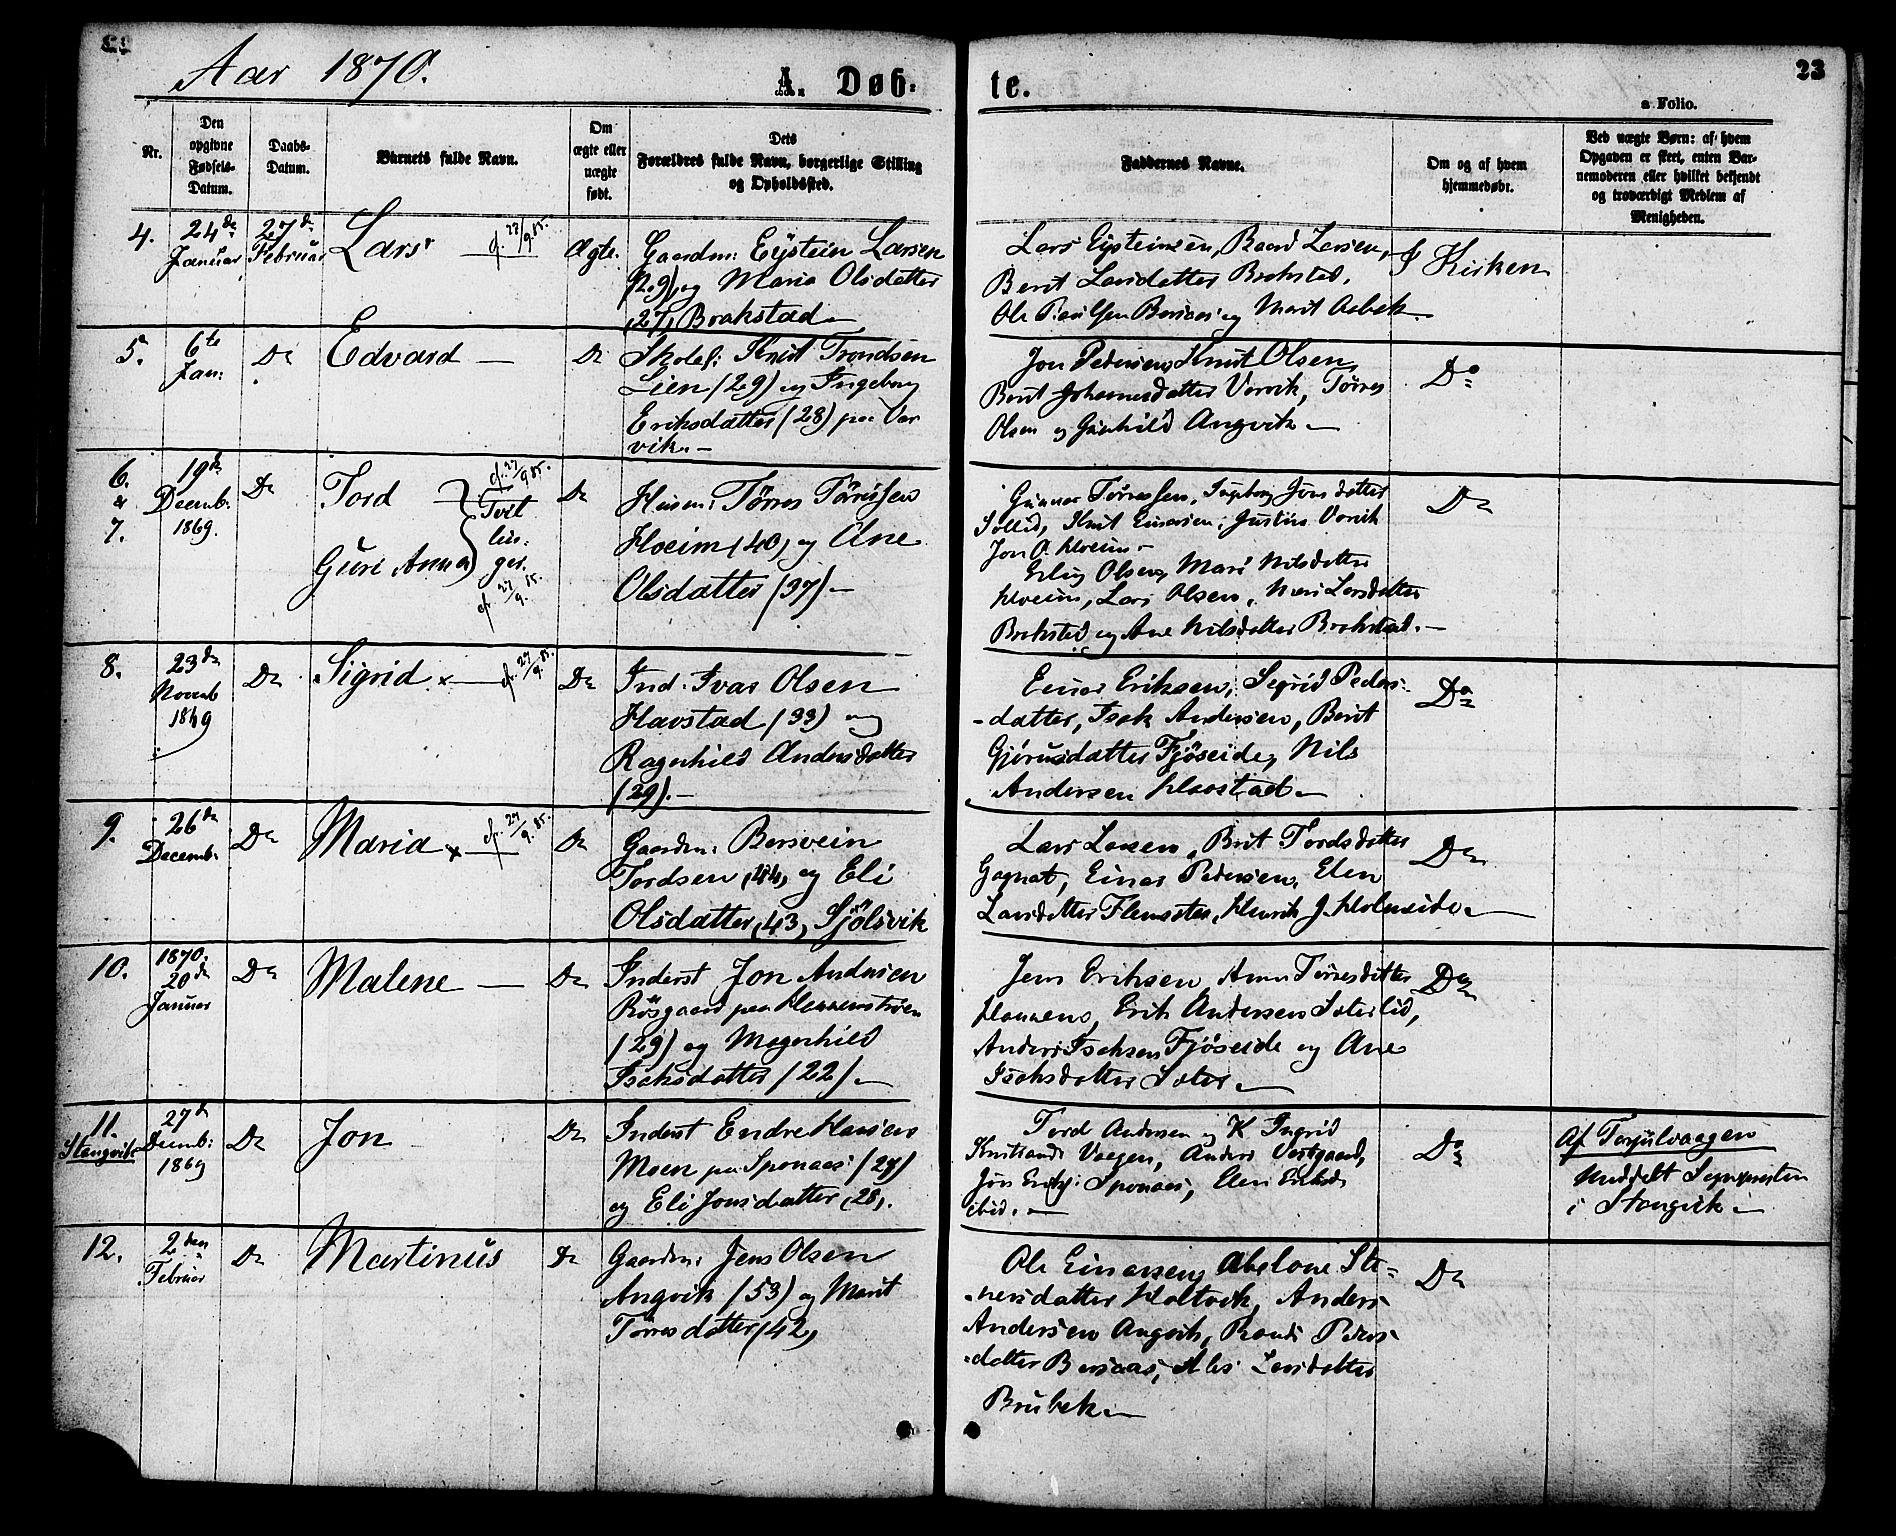 Aar 1870.
A. Døb-
te.
23
a Folio.
Nr.
Den
opgivne
Fødsels-
Datum.
Daabs-
Datum.
Barnets fulde Navn.
Om
ægte eller
uægte
født.
Dets
Forældres fulde Navn, borgerlige Stilling
og Opholdssted.
Faddernes Navne.
Om og af hvem
hjemmedøbt.
Ved uægte Børn: af hvem
Opgaven er skeet, enten Bar-
nemoderen eller hvilket bekjendt
og troværdigt Medlem af
Menigheden.
4.
24de
Januar
27de
Februar
Lars
Ægte.
Gaardm: Eystein Larsen
(29), og Maria Olsdatter
27, Brakstad
Lars Eysteinsen, Baard Larsen,
Berit Larsdatter Brakstad,
Ole Bersaas og Marit Aabek
I Kirken
5.
6te
Jan:
Do
Edvard
Do
Skolel: Knut Trondsen
Lien (29) og Ingeborg
Eriksdatter (28) paa Var
vik.
Jon Pedersen, Knut Olsen,
Berit Johannesdatter Varvik, Tørres
Olsen og Gunhild Angvik
Do
6.
&
7.
19de
Decemb:
1869.
Do
Tord
Guri Anna
Tvil
lin:
ger.
Do
Husm: Tørres Tørresen
Hoeim (40) og Ane
Olsdatter (37)
Gunnar Tørresen, Ingeborg Jonsdatter
Sollid, Knut Einarsen, Varvik
Jon O. Hoeim
Erling Olsen, Mari Nilsdatter
Hoeim, Lars Olsen, Mari Larsdatter
Brakstad og Ane Nilsdatter Brakstad.
Do
8.
23de
Novemb
1869
Do
Sigrid
Do
Ind. Ivar Olsen
Havstad (33) og
Ragnhild Andersdatter
(29).
Einar Eriksen, Sigrid Peders-
datter, Isak Andersen, Berit
Gjørensdatter Fjøseide, Nils
Andersen Havstad
Do
9.
26de
Decemb.
Do
Maria
Do
Gaardm: Bersvein
Tordsen, 44, og Eli
Olsdatter, 43, Sjølsvik
Lars Larsen, Brit Tordsdatter
Gagnat, Einar Pedersen, Elen
Larsdatter Flemsæter, Henrik J. Holmeide
Do
10.
1870.
20de
Januar
Do
Malene
Do
Inderst Jon Andersen
Røsgaard paa
(29) og Magnhild
Isaksdatter (22)
Jens Eriksen, Anne Tørresdatter
Hannens, Erik Andersen Sæterlid,
Anders Isaksen Fjøseide og Ane
Isaksdatter Sæter
Do
11.
Stangvik
27d
Decemb:
1869
Do
Jon
Do
Inderst Endre Hansen
Moen paa Sponaas (27)
og Eli Jonsdatter, 28,
Tord Andersen og K Ingrid
Knutsand Vaagen, Anders Vestgaard,
Jon Sponaas, Elen
ibid.
Do
Af Torjulvaagen
Meddelt Sognepresten
i Stangvik
12.
2den
Februar
Do
Martinus
Do
Gaardm: Jens Olsen
Angvik (53) og Marit
Tørresdatter, 42,
Ole Einarsen, Abelone Ste-
nersdatter Holtvik, Anders
Andersen Angvik, Randi Peders-
datter Bersaas, Larsdatter
Brubek
Do